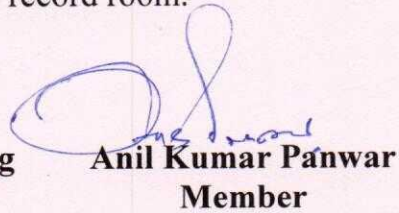 record room.
g Anil Kumar Panwar
Member